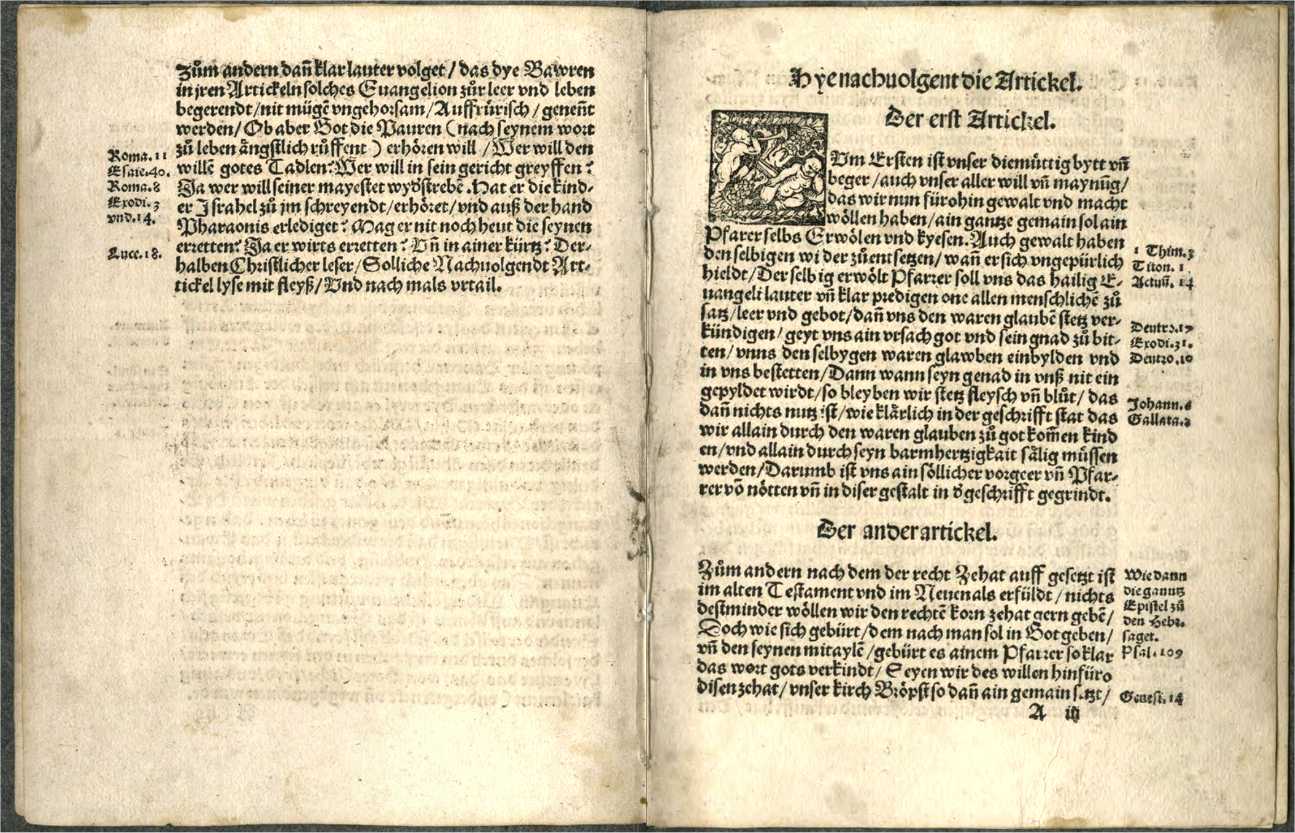 Zům andern dañ klar lauter volget / das dye Bawren
in jren Artickeln solches Euangelion zůr leer vnd leben
begerendt / nit mügẽ vngehorsam / Auffrürisch / geneñt
werden / Ob aber Got die Pauren (nach seynem wort
zů leben ängstlich růffent) erhören will / Wer will den
willẽ gotes Tadlen? Wer will in sein gericht greyffen?
Ja wer will seiner mayestet wyđstrebẽ. Hat er die kind-
er Israhel zů jm schreyendt / erhöret / vnd auß der hand
Pharaonis erlediget? Mag er nit noch heut die seynen
erretten? Ja er wirts erretten? Vñ in ainer kürtz? Der-
halben Christlicher leser / Solliche Nachuolgendt Art-
tickel lyse mit fleyß / Vnd nach mals vrtail.
Roma. 11
Esaie. 40.
Roma. 8
Exodi. 3
vnd. 14.
Luce. 18.
Hye nachuolgent die Artickel.
Der erst Artickel.
Vm Ersten ist vnser diemüttig bytt vñ
beger / auch vnser aller will vñ maynũg /
das wir nun fürohin gewalt vnd macht
wöllen haben / ain gantze gemain sol ain
Pfarer selbs Erwölen vnd kyesen. Auch gewalt haben
den selbigen wi der zůentsetzen / wañ er sich vngepürlich
hieldt / Der selbig erwölt Pfarrer soll vns das hailig E-
uangeli lauter vñ klar predigen one allen menschlichẽ zů
satz / leer vnd gebot / dañ vns den waren glaubẽ stetz ver-
kündigen / geyt vns ain vrsach got vnd sein gnad zů bit-
ten / vnns den selbygen waren glawben einbylden vnd
in vns bestetten / Dann wann seyn genad in vnß nit ein
gepyldet wirdt / so bleyben wir stetz fleysch vñ blůt / das
dañ nichts nutz ist / wie klärlich in der geschrifft stat das
wir allain durch den waren glauben zů got kom̃en kind
en / vnd allain durch seyn barmhertzigkait sälig müssen
werden / Darumb ist vns ain söllicher vorgeer vñ Pfar-
rer võ nötten vñ in diser gestalt in đ geschrifft gegrindt.
1 Thim. 3
Titon. 1
Actuũ. 14
Deutro. 17
Exodi. 31.
Deutro. 10
Johann. 6
Gallata. 2
Der ander artickel.
Zům andern nach dem der recht Zehat auff gesetzt ist
im alten Testament vnd im Neuen als erfüldt / nichts
destminder wöllen wir den rechtẽ korn zehat gern gebẽ /
Doch wie sich gebürt / dem nach man sol in Got geben /
vñ den seynen mitaylẽ / gebürt es ainem Pfarrer so klar
das wort gots verkindt / Seyen wir des willen hinfüro
disen zehat / vnser kirch Bröpst so dañ ain gemain setzt /
Wie dann
die gantz
Epistel zů
den Hebr.
saget.
Psal. 109
Genesi. 14
A iij